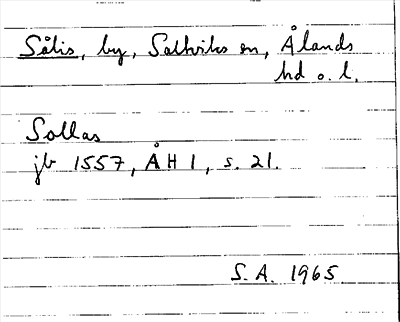 Sålis, by, Saltviks sn, Ålands
hd o. l.
Sollas
jb 1557, ÅH 1, s. 21.
S.A. 1965